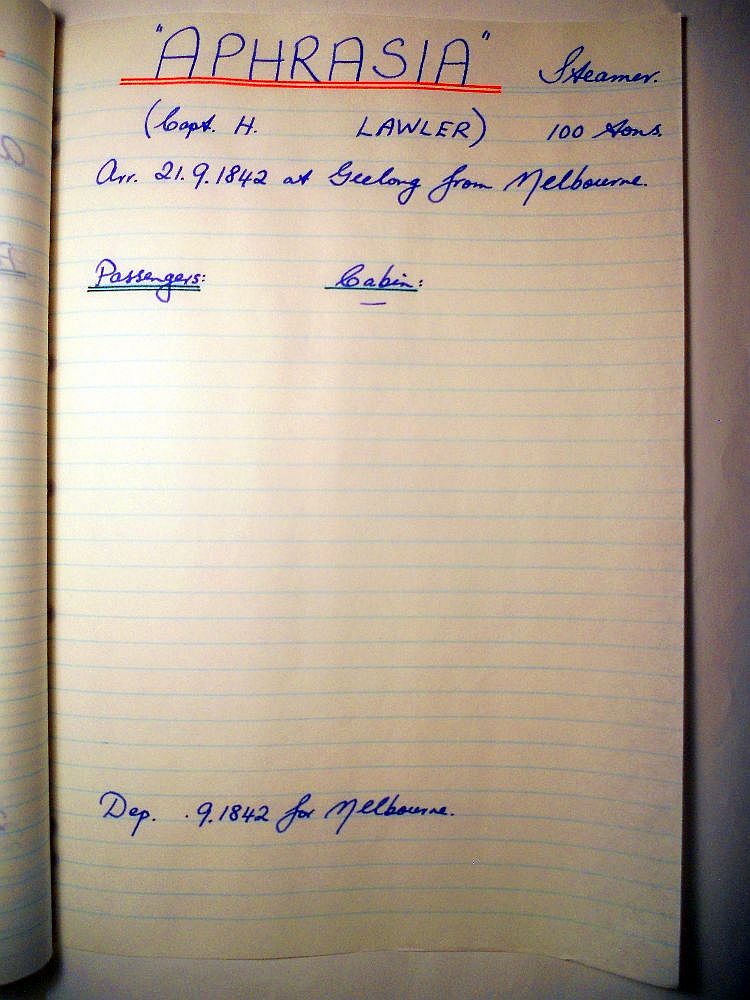 "APHRASIA" Steamer.
(Capt. H. LAWLER) 100 tons.
Arr. 21.9.1842 at Geelong from Melbourne.
Passengers: Cabin:
Dep. .9.1842 for Melbourne.